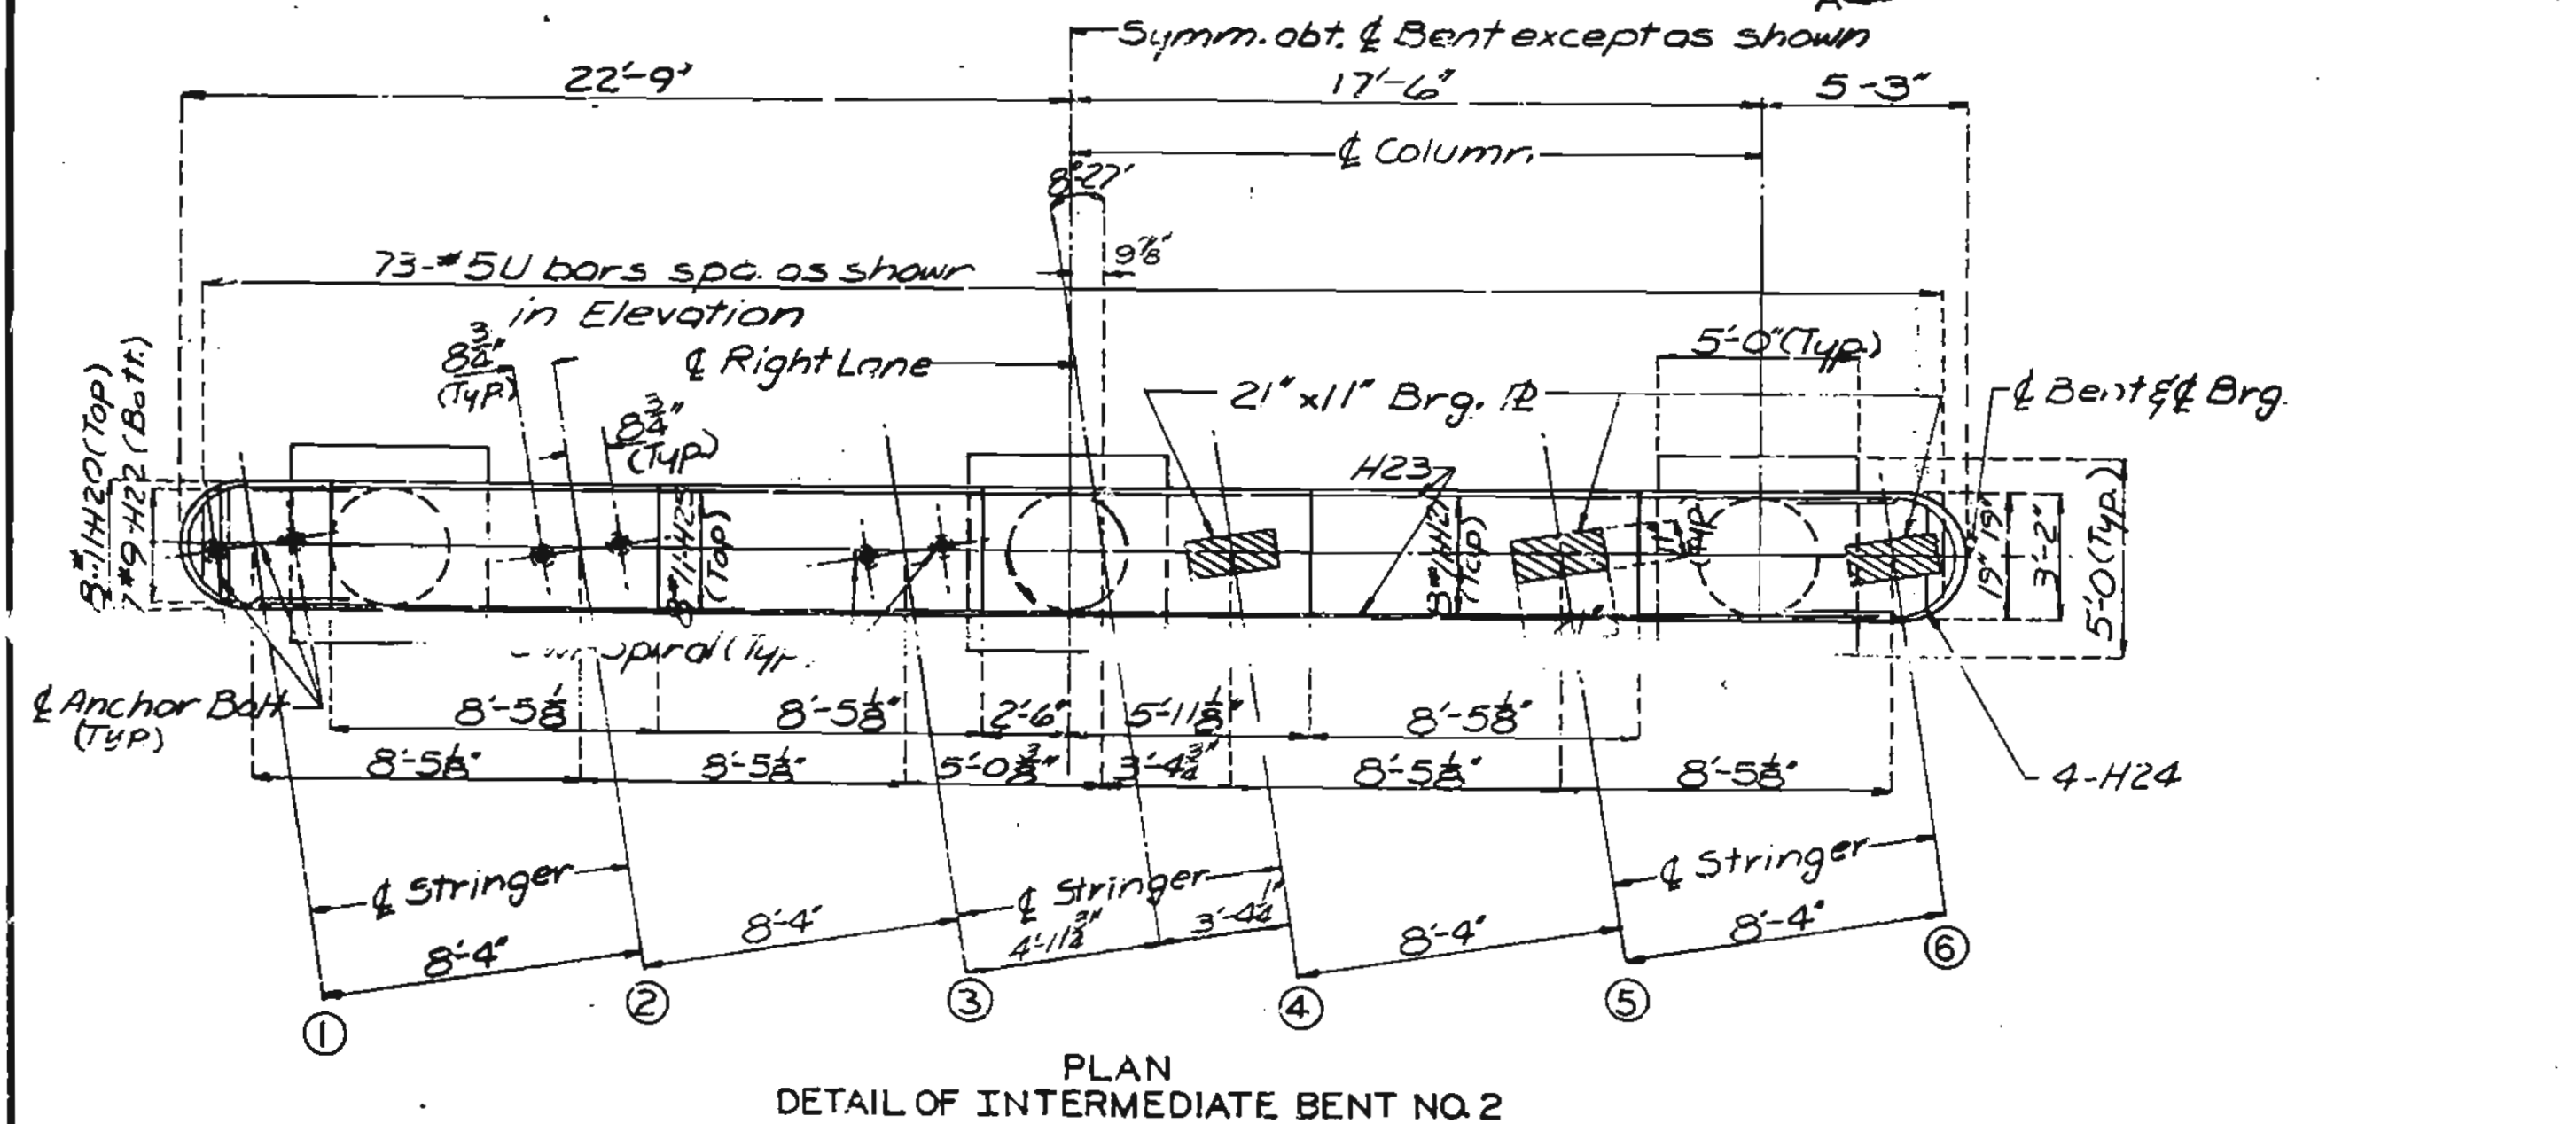 Symm. abt. ℄ Bent except as shown
22'-9"
17'-6"
5'-3"
℄ Column
8°-27'
9⅞"
73-#5U bars spa. as shown
in Elevation
8¾"
(Typ.)
℄ Right Lane
8¾"
(Typ.)
21"x11" Brg. ℙ
5'-0"(Typ.)
℄ Bent & ℄ Brg.
7#9-H22 (Bott.)
H23
(Top)
(Top)
19" 19"
3'-2"
5'-0(Typ.)
Spiral (Typ.
℄ Anchor Bolt
(Typ.)
8'-5⅛"
8'-5⅛"
2'-6"
5'-11⅛"
8'-5⅛"
8'-5⅛"
8'-5⅛"
5'-0⅜"
3'-4¾"
8'-5⅛"
8'-5⅛"
4-H24
℄ Stringer
℄ Stringer
℄ Stringer
8'-4"
8'-4"
4'-11¾"
3'-4¼"
8'-4"
8'-4"
1
2
3
4
5
6
PLAN
DETAIL OF INTERMEDIATE BENT NO. 2